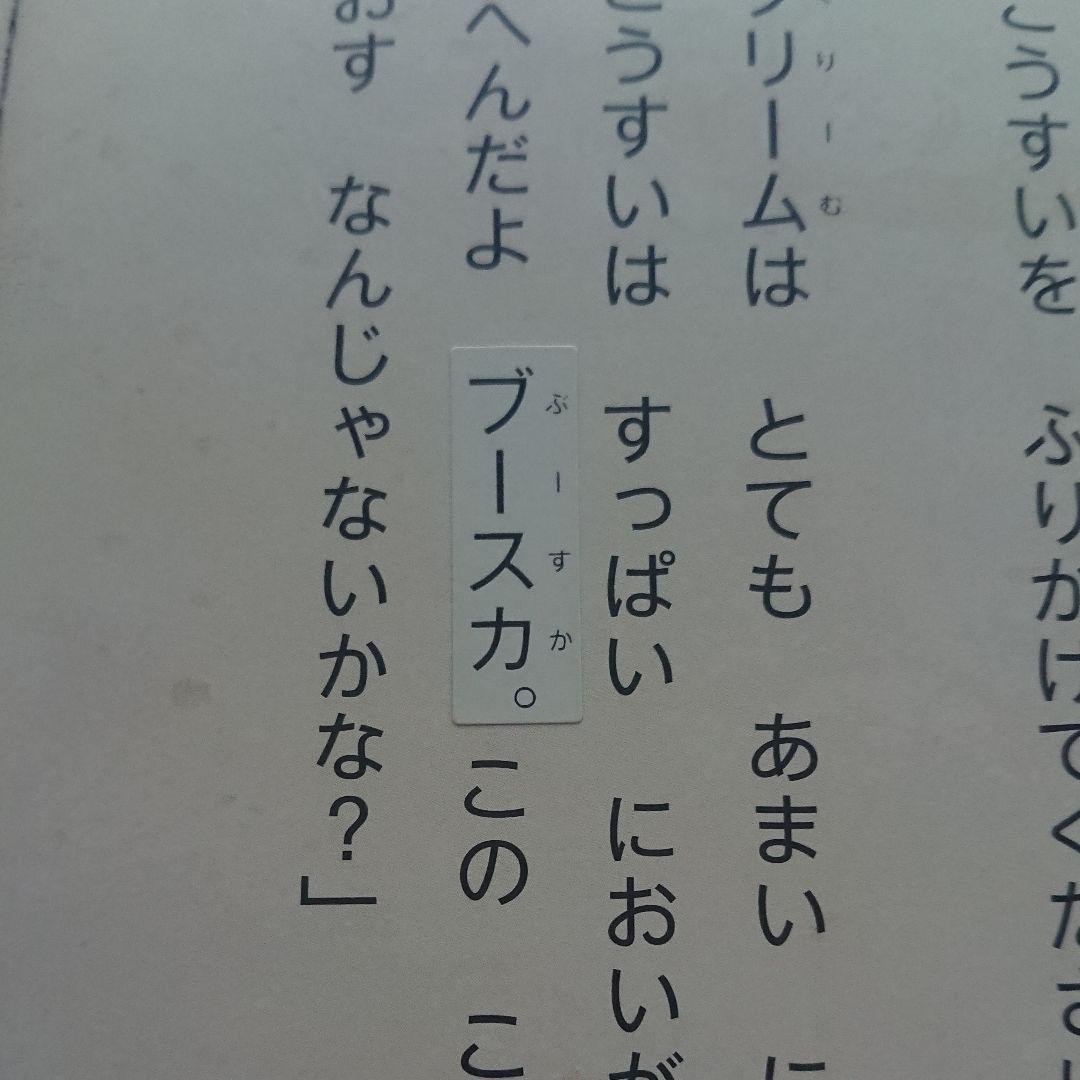 こうすいを ふりかけてくださ
リームは とても あまい に
こうすいは すっぱい においが
へんだよ ブースカ。この こ
おす なんじゃないかな？」